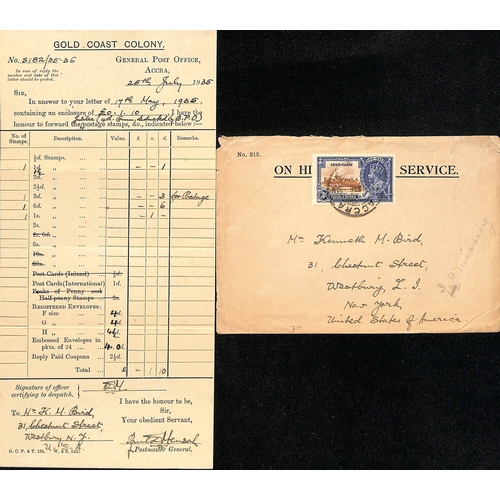 GOLD COAST COLONY.
No. S182/35-36
GENERAL POST OFFICE,
In case of reply the
number and date of this
letter should be quoted.
ACCRA,
25th July 1935
SIR,
In answer to your letter of 17th May, 1935,
containing an enclosure of £0.1.10 I have the
honour to forward the postage stamps, &c., indicated below:—
No. of Stamps. Description. Value. £ s. d. Remarks.
½d. Stamps.
1 1d. „ - - 1
2d. „
2½d. „
1 3d. „ - - 3 for Postage
1 6d. „ - - 6
1 1s. „ - 1 -
2s. „
2s. 6d. „
5s. „
10s. „
20s. „
Post Cards (Inland) ½d.
Post Cards (International) 1d.
Books of Penny and
Half-penny Stamps 2s.
REGISTERED ENVELOPES:
F size 4d.
G „ 4d.
H „ 4½d.
Embossed Envelopes in
pkts. of 24 4s. 0d.
Reply Paid Coupons 2½d.
Total £ - 1 10
Signature of officer
certifying to despatch.
I have the honour to be,
Sir,
Your obedient Servant,
Postmaster General.
To Mr K. M. Bird,
31, Chestnut Street,
Westbury N.Y.
U.S.A.
G. C. P. & T. 135.
No. 213.
ON HI SERVICE.
GOLD COAST
ACCRA
Mr Kenneth M. Bird,
31, Chestnut Street,
Westbury L. I.
New York,
United States of America.